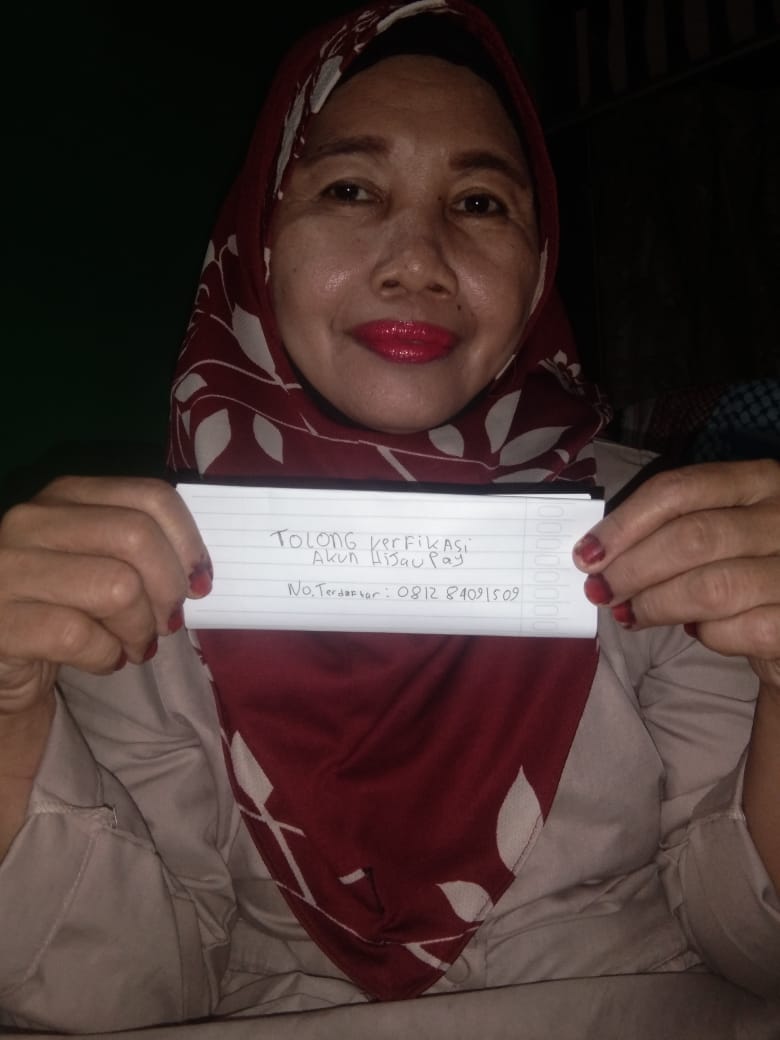 TOLONG VerFikASi
AkUn HiJaU Pay
No. Terdaftar : 0812 84091509